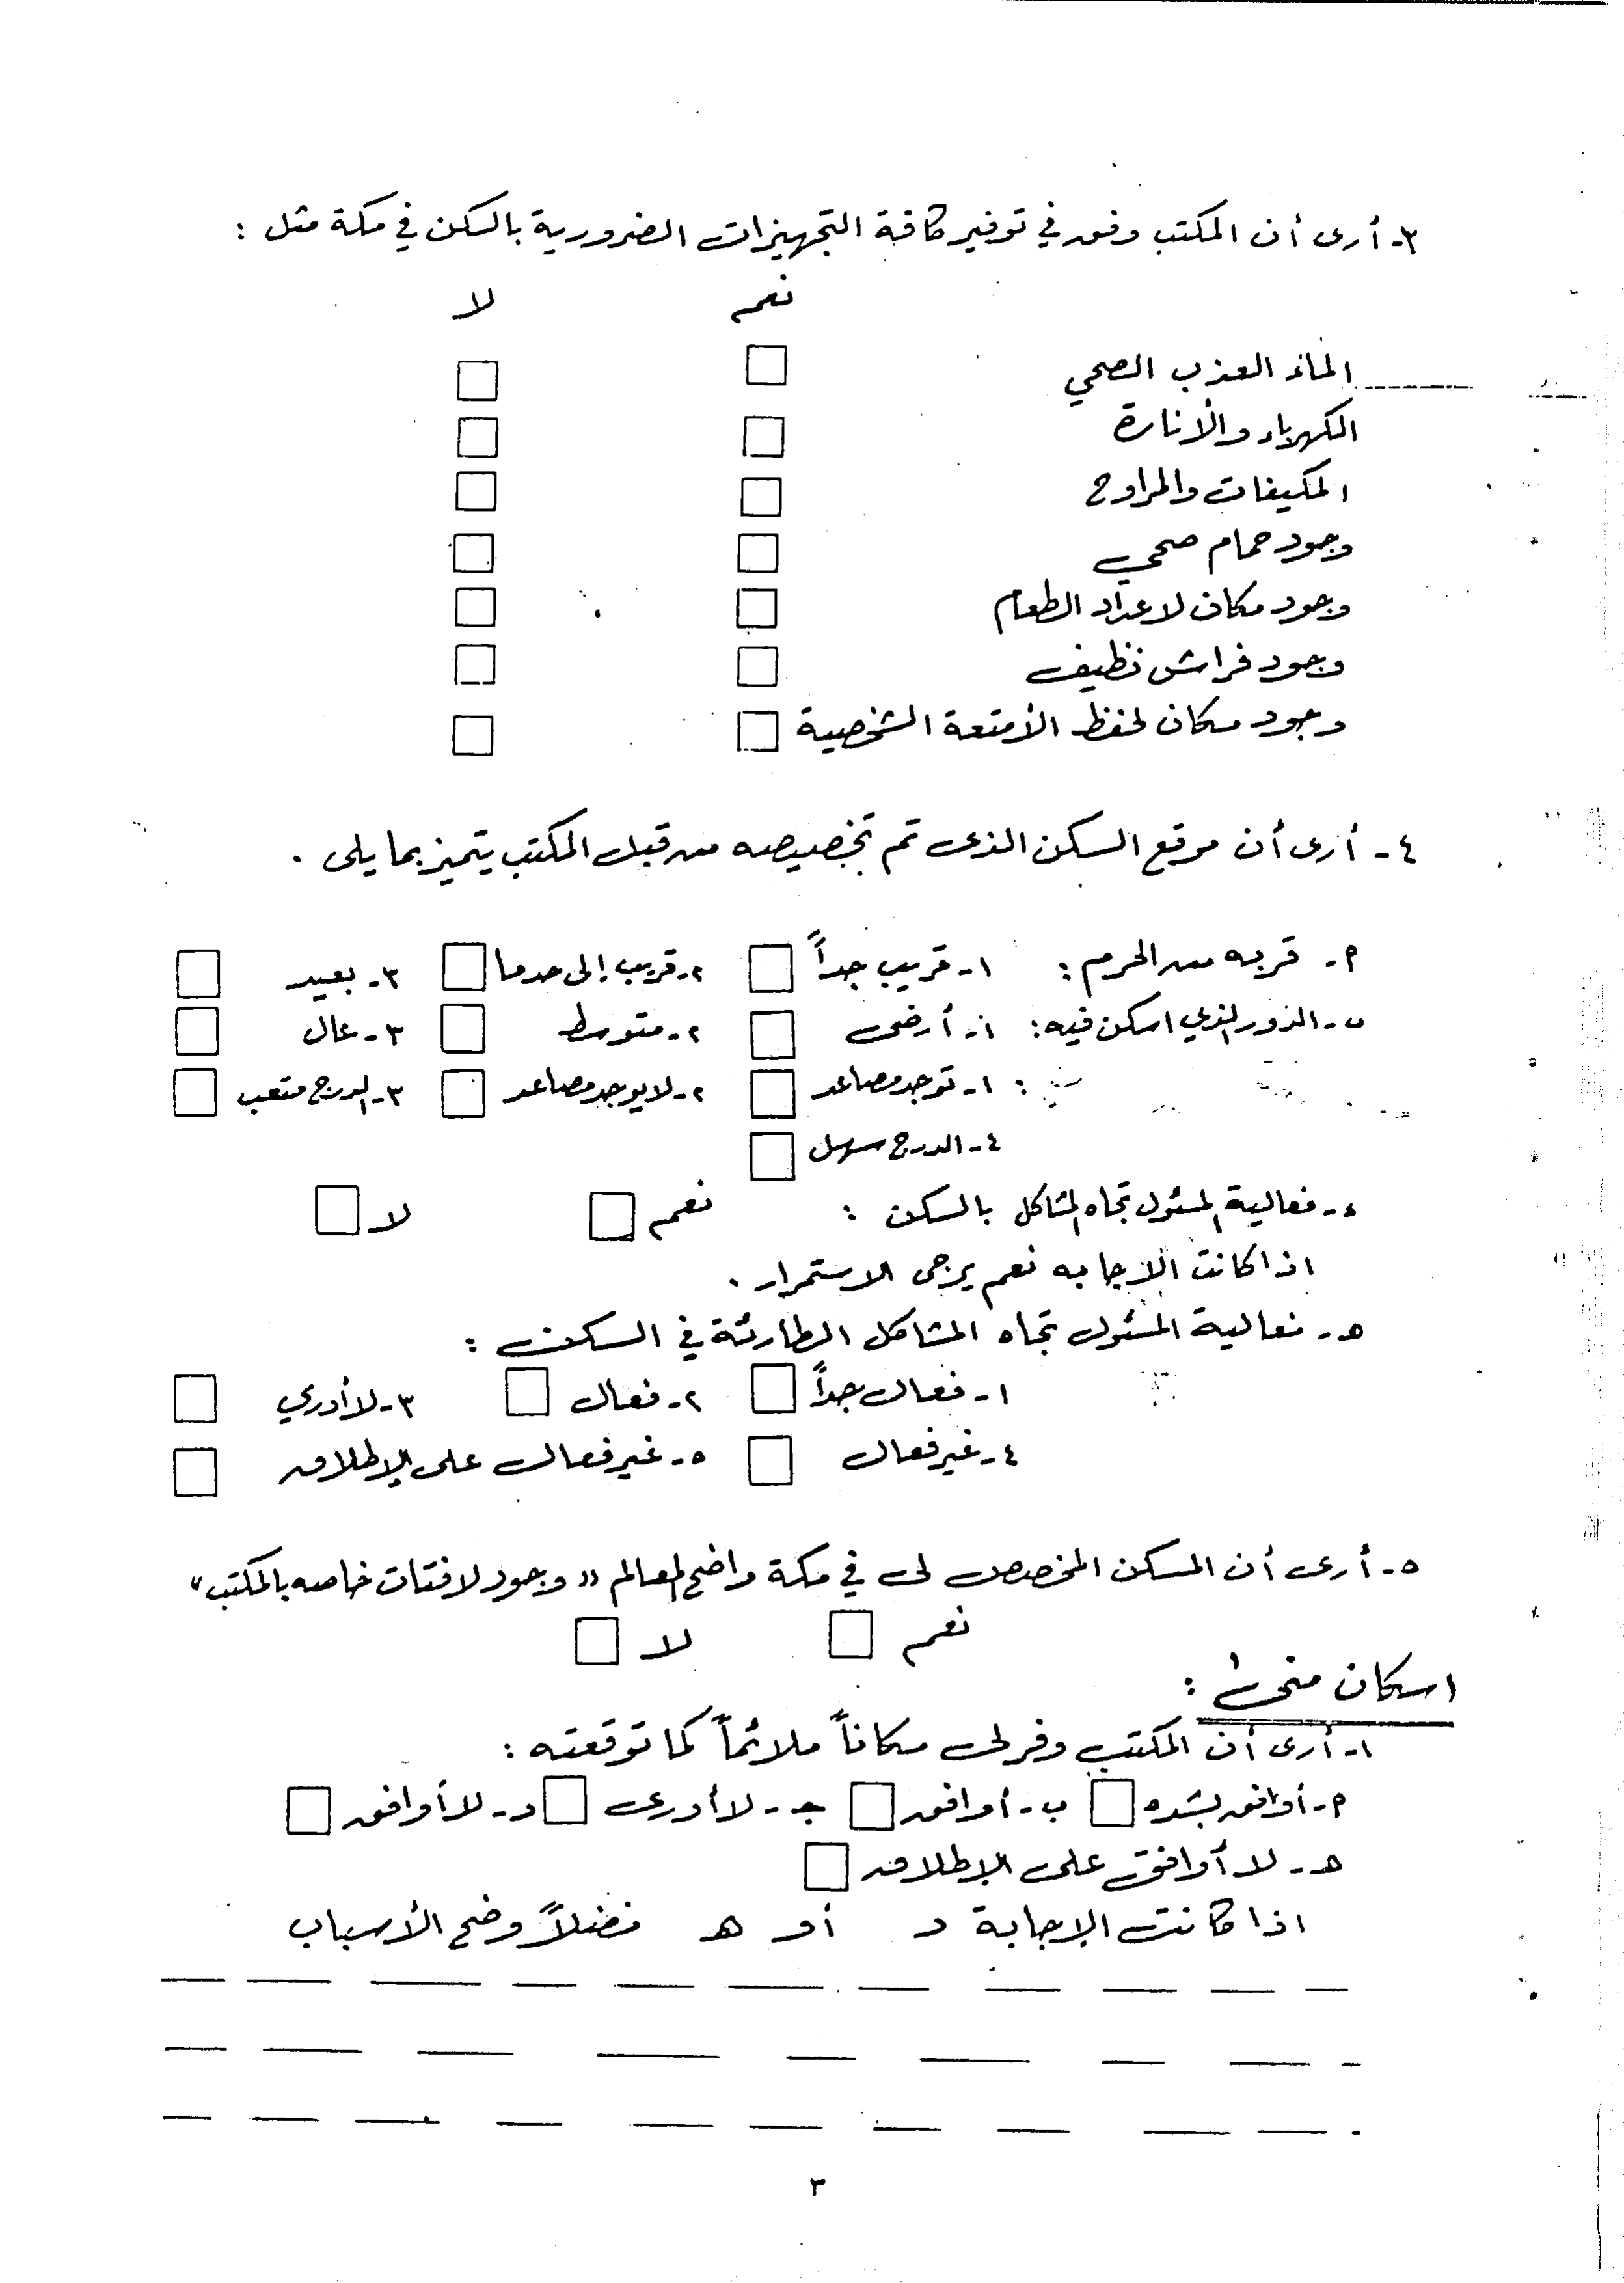 ٣- أرى أن المكتب وفق في توفير كافة التجهيزات الضرورية بالسكن في مكة مثل :
نعم لا
الماء العذب الصحي
الكهرباء والأنارة
المكيفات والمراوح
وجود حمام صحي
وجود مكان لاعداد الطعام
وجود فراش نظيف
وجود مكان لحفظ الأمتعة الشخصية
٤- أرى أن موقع السكن الذى تم تخصيصه من قبل المكتب يتميز بما يلى .
م- قربه من الحرم : ١- قريب جداً ٢- قريب إلى حد ما ٣- بعيد
ب- الدور الذي اسكن فيه : ١- أرضى ٢- متوسط ٣- عال
: ١- توجد مصاعد ٢- لا يوجد مصاعد ٣- الدرج متعب
٤- الدرج سهل
د- فعالية المسئول تجاه المشاكل بالسكن : نعم لا
اذا كانت الاجابه نعم يرجى الاستمرار .
هـ- فعالية المسئول تجاه المشاكل الطارئة في السكن :
١- فعال جداً ٢- فعال ٣- لا أدري
٤- غير فعال ٥- غير فعال على الإطلاق
٥- أرى أن المسكن المخصص لى في مكة واضح المعالم " وجود لافتات خاصه بالمكتب "
نعم لا
اسكان منى :
١- أرى أن المكتب وفر لى مكاناً ملائماً كما توقعته :
م- أوافق بشده ب- أوافق جـ- لا أدرى د- لا أوافق
هـ- لا أوافق على الإطلاق
اذا كانت الإجابة د أو هـ فضلاً وضح الأسباب
٣